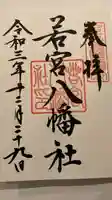 奉拝
若宮八幡社
令和三年十二月二十九日